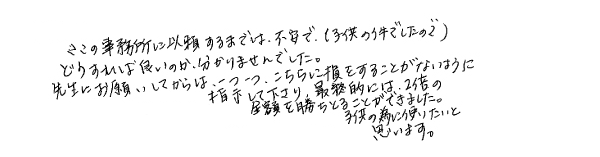 ここの事務所に以頼するまでは、不安で、(子供の件でしたので)
どうすれば良いのか、分かりませんでした。
先生にお願いしてからは、一つ一つ、こちらに損をすることがないように
指示して下さり、最終的には、2倍の
金額を勝ちとることができました。
子供の為に使りたいと
思います。